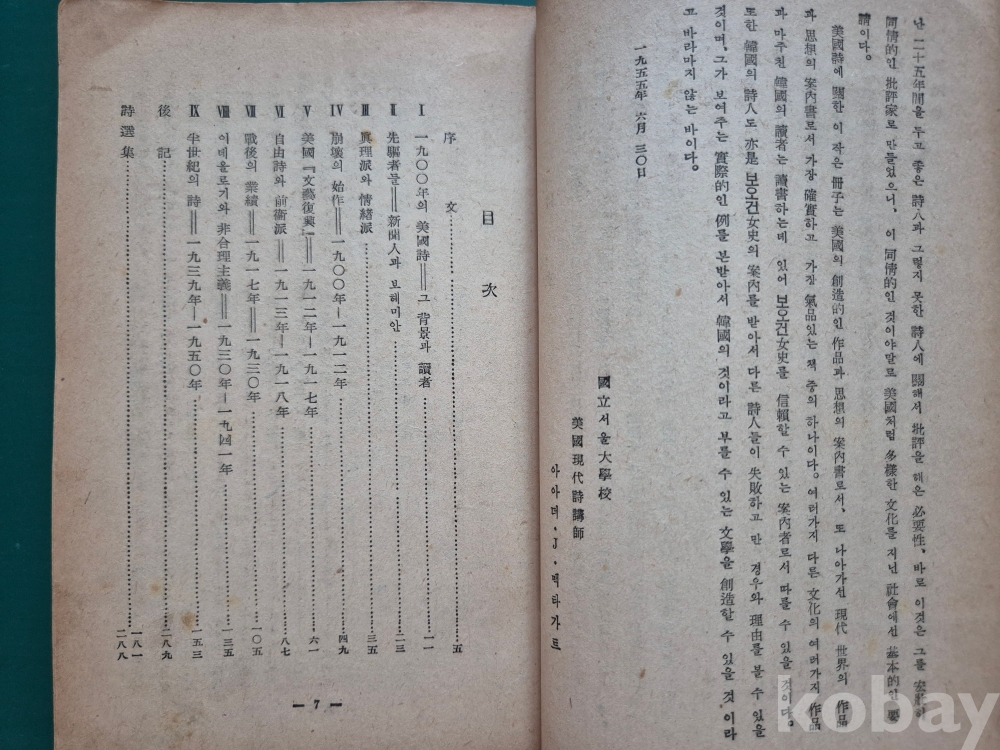 난 二十五年間을 두고 좋은 詩人과 그렇지 못한 詩人에 關해서 批評을 해온 必要性, 바로 이것은 그를 宏壯히
同情的인 批評家로 만들었으니, 이 同情的인 것이야말로 美國처럼 多樣한 文化를 지넌 社會에선 基本的인 要
請이다.
美國詩에 關한 이 작은 冊子는 美國의 創造的인 作品과 思想의 案內書로서, 또 나아가선 現代 世界의 作品
과 思想의 案內書로서 가장 確實하고 가장 氣品있는 책 중의 하나이다. 여러가지 다른 文化의 여러가지 作品
과 마주친 韓國의 讀者는 讀書하는데 있어 보오건女史를 信賴할 수 있는 案內者로서 따를 수 있을 것이다.
또한 韓國의 詩人도 亦是 보오건女史의 案內를 받아서 다른 詩人들이 失敗하고 만 경우와 理由를 볼 수 있을
것이며, 그가 보여주는 實際的인 例를 본받아서 韓國의 것이라고 부를 수 있는 文學을 創造할 수 있을 것이라
고 바라마지 않는 바이다.
一九五五年 六月 三〇日
國立서울大學校
美國現代詩講師
아아더・J・멕타가트
目 次
序 文……五
Ⅰ 一九〇〇年의 美國詩=그 背景과 讀者……一一
Ⅱ 先驅者들=新聞人과 보헤미안……二三
Ⅲ 眞理派와 情緖派……三五
Ⅳ 崩壞의 始作=一九〇〇年―一九一二年……四九
Ⅴ 美國『文藝復興』=一九一二年―一九一七年……六一
Ⅵ 自由詩와 前衛派=一九一三年―一九一八年……八七
Ⅶ 戰後의 業績=一九一七年―一九三〇年……一〇五
Ⅷ 이데올로기와 非合理主義=一九三〇年―一九四一年……一三五
Ⅸ 半世紀의 詩=一九三九年―一九五〇年……一五三
後 記……二八九
詩選集……一八一
二八八
― 7 ―
kobay